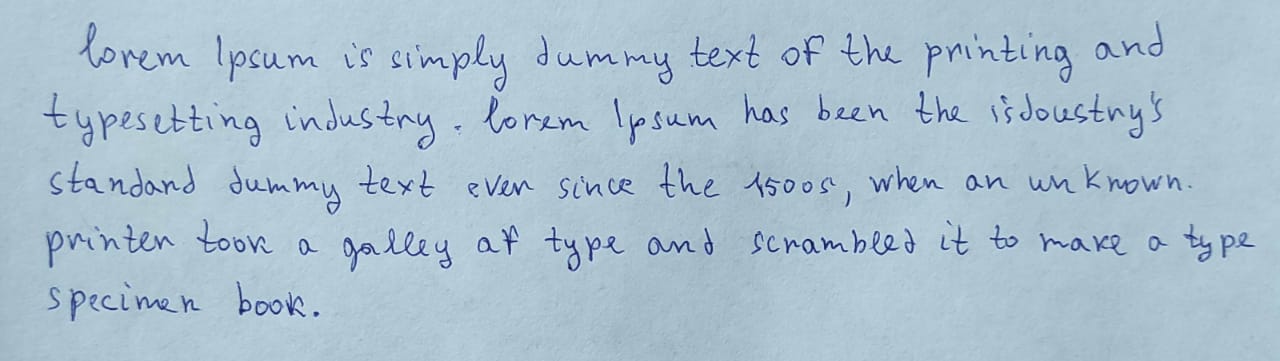 lorem Ipsum is simply dummy text of the printing and
typesetting industry. lorem Ipsum has been the isdoustry's
standard dummy text ever since the 1500s, when an unknown.
printer took a galley of type and scrambled it to make a type
specimen book.